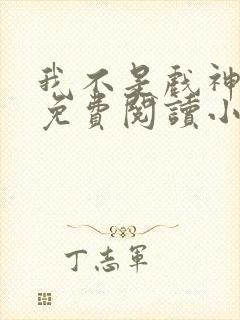 我不是戲神
免費閱讀小
丁志軍